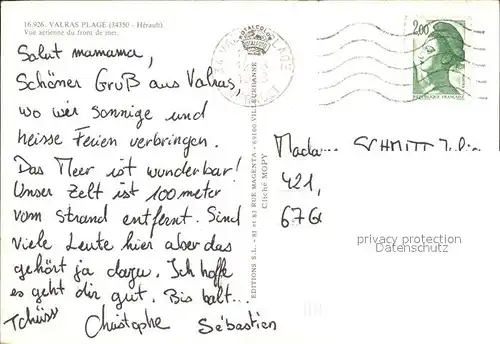 16.926. VALRAS PLAGE (34350 - Hérault)
Vue aérienne du front de mer.
Salut mamama,
Schöner Gruß aus Valras,
wo wir sonnige und
heisse Ferien verbringen.
Das Meer ist wunderbar!
Unser Zelt ist 100 meter
vom Strand entfernt. Sind
viele Leute hier aber das
gehört ja dazu. Ich hoffe
es geht dir gut. Bis balt...
Tchüss Christophe Sébastien
EDITIONS S.L. - 81 et 83 RUE MAGENTA - 69100 VILLEURBANNE
Cliché MOPY
ROYALCOLOR
PLAGE
2,00
REPUBLIQUE FRANÇAISE
Mada
421,
67G
privacy protection
Datenschutz